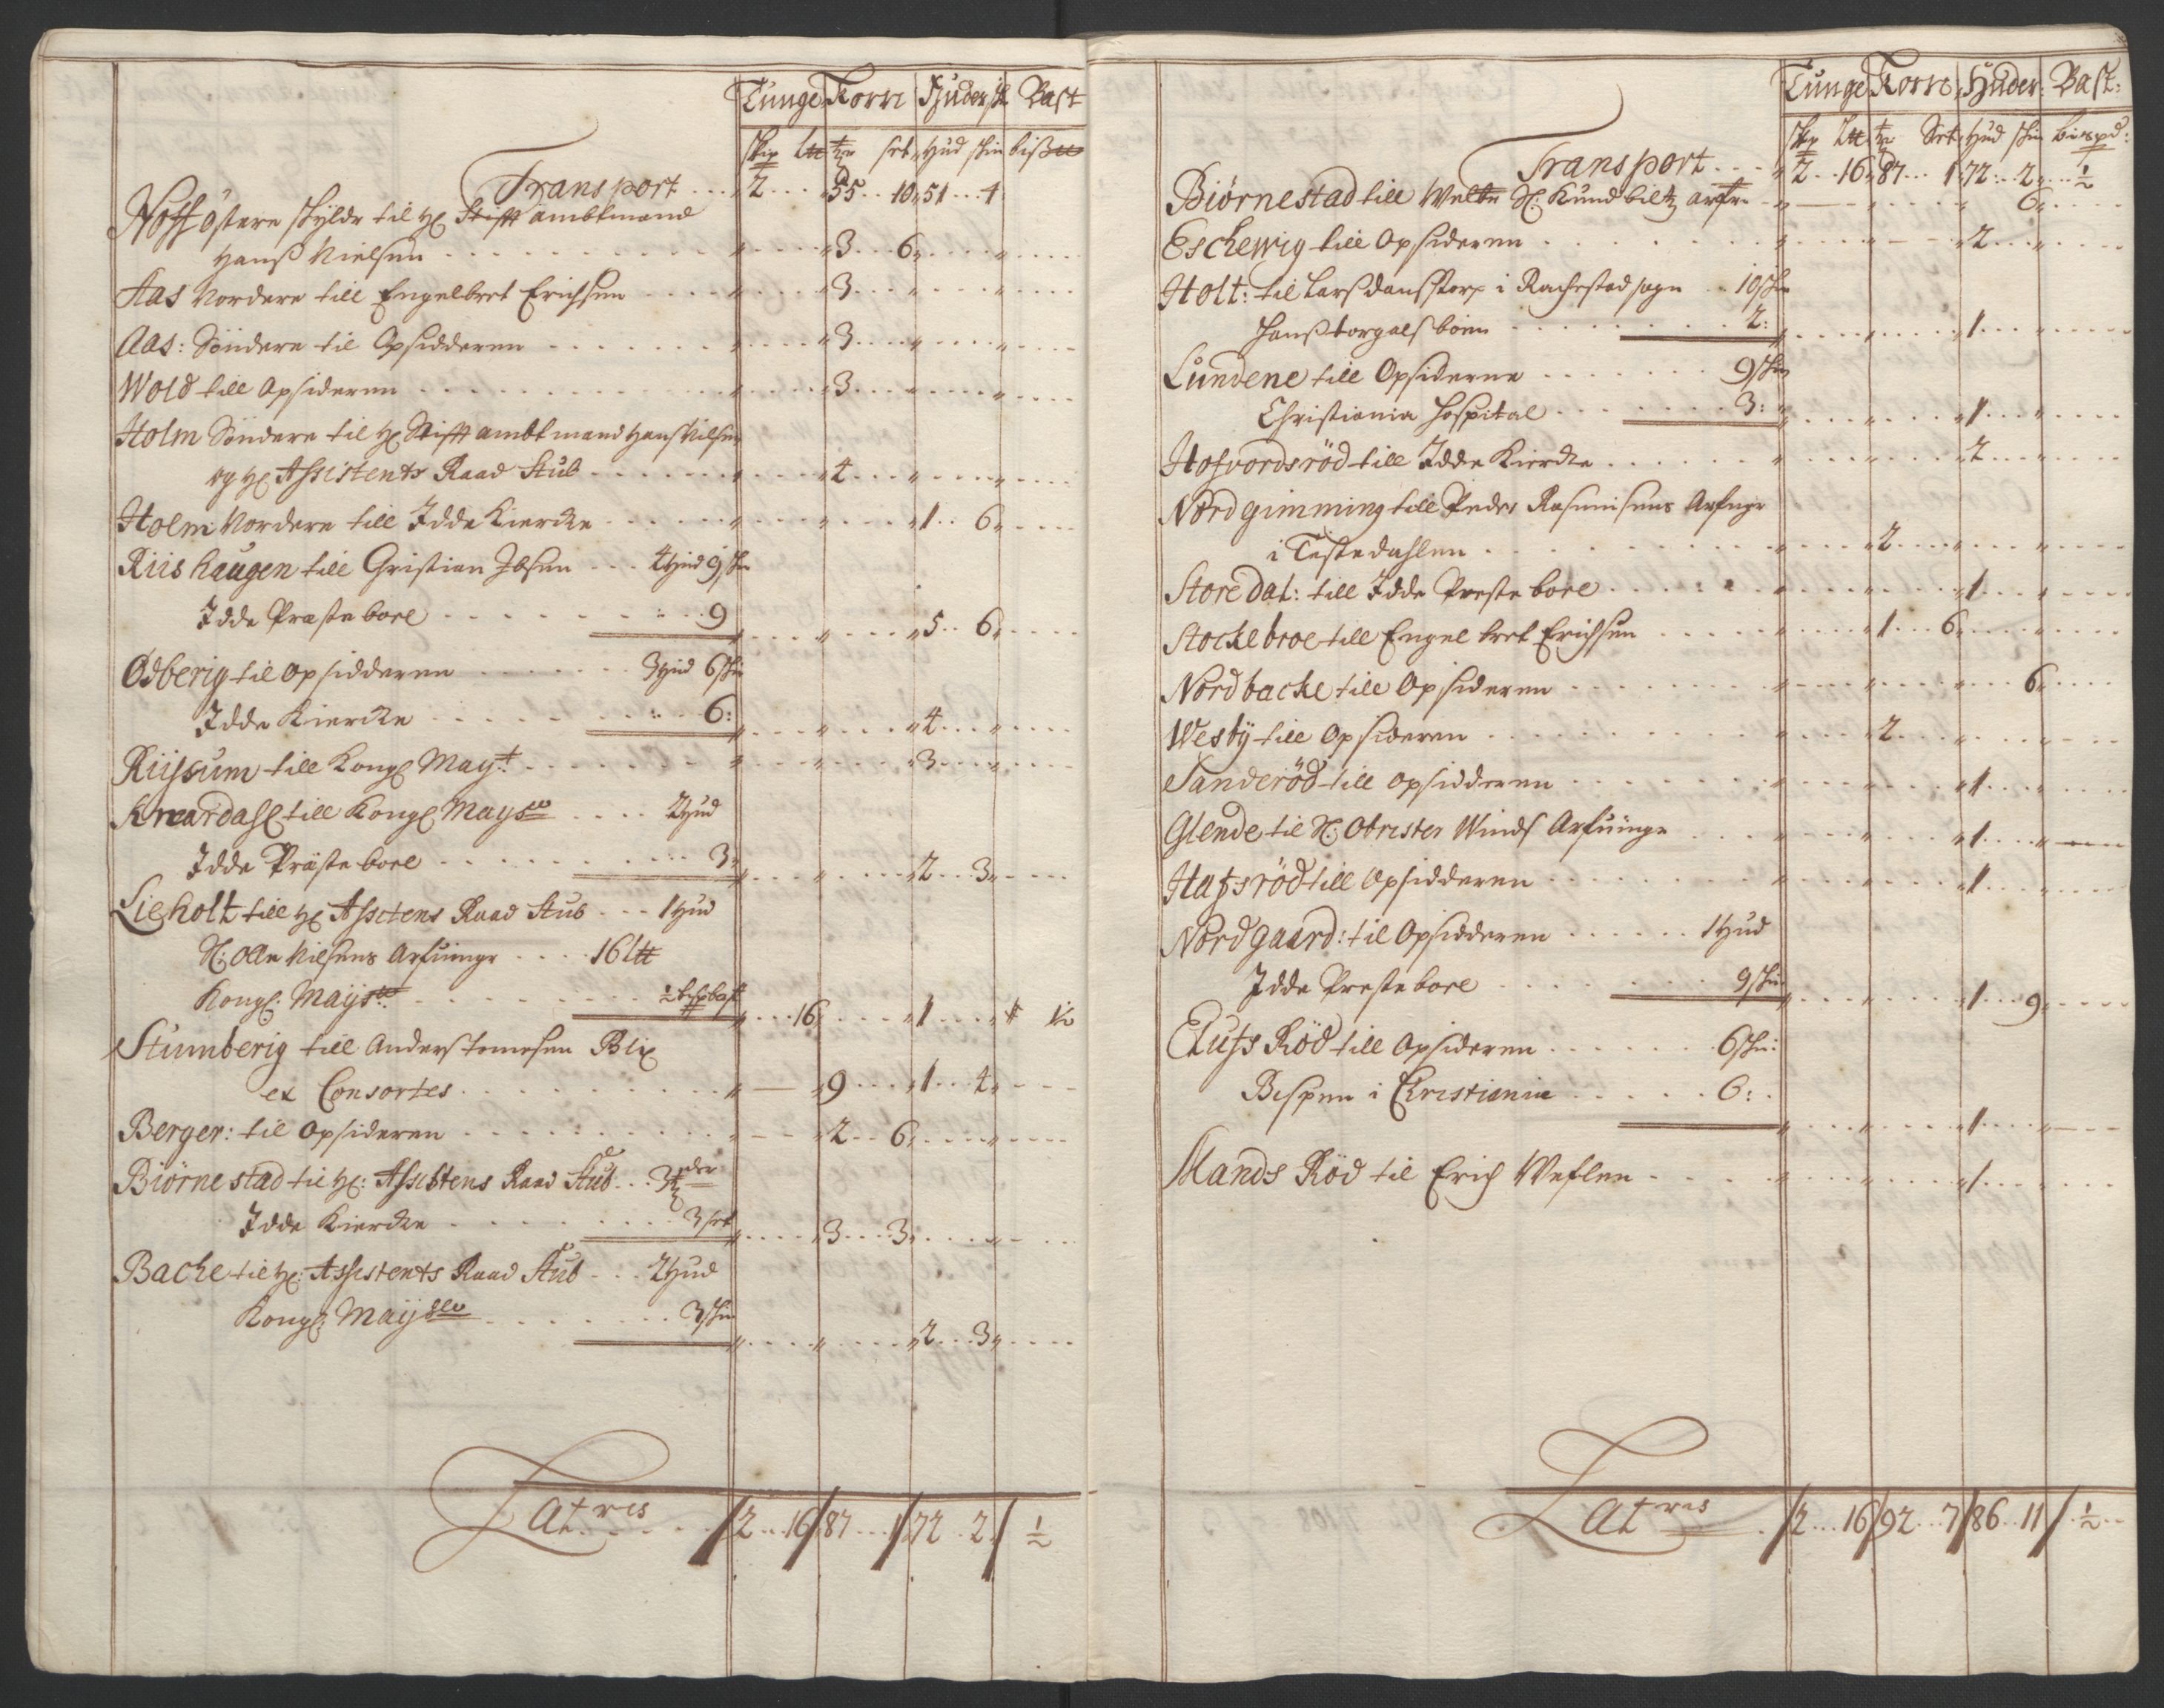 Tunge Korn Huder sk Bast
skip ltt tr set Hud skin bißtt
Transport 2 55 10 51 4
Noss östere skylder til H: Stifft ambtmand
Hanß Nielsen 3 6
Aas Nordere till Engelbret Erichsen 3
Aas: Söndere til Opsidderen 3
Wold till Opsideren 3
Holm Söndere til H: Stifft ambtmand Hans Nilsen
og H: Assistents Raad Stub 4
Holm Nordere till Idde Kiercke 1 6
Riis haugen till Cristian Ibsen 4 Hud 9 skin
Idde Præste boel 9 5 6
Odberig til Opsidderen 3 Hud 6 skin
Idde Kiercke 6: 4
Riijsum till Kongl Mayt: 3
Knardahl till Kongl Mays 2 Hud
Idde Präste boel 3 2 3
Lieholt till H: Assitens Raad Stub 1 Hud
H: Olle Nilsens Arfuinge 16 ltt
Kongl: Mays ½ bispd bast 16 1 ½
Stumberig till Anders Tomesen Blix
ex Consortes 9 1 4
Berger: til Opsideren 2 6
Biörnestad til H: Assistens Raad Stub 3 tr
Idde Kiercke 3 set 3 3
Backe til H: Assistents Raad Stub 2 Hud
Kongl: Mayst 3 skin 2 3
Latris 2 16 87 1 72 2 ½
Tunge Korn Huder: Bast:
skip Ltt tr Set Hud skin bispd:
Transport 2 16 87 1 72 2 ½
Biörnestad till Welb H: Knud biltz arfr 6
Eschewig till Opsideren 2
Holt: til Larß dansstorp i Rachestad sogn 10 skin
Hanß torgalsboen 2: 1
Lundene till Opsiderne 9 skin
Christiania Hospital 3: 1
Hofvordsröd till Idde Kiercke 2
Nordgimming till Peder Rasmusens Arfinge
i Tistedahlen 2
Store dal: till Idde Preste boel 1
Stockebroe till Engel bret Erichsen 1 6
Nordbacke till Opsideren 6
Wesby till Opsideren 2
Sanderöd till Opsidderen 1
Glende til H: Obrister Winds Arfuinge 1
Hafsröd till Opsidderen 1
Nordgaard: til Opsidderen 1 Hud
Idde Preste boel 9 skin 1 9
Elufs Röd till Opsideren 6 skin:
Bispen i Christiania 6: 1
Mands Röd til Erich Weflen 1
Latris 2 16 92 7 86 11 ½